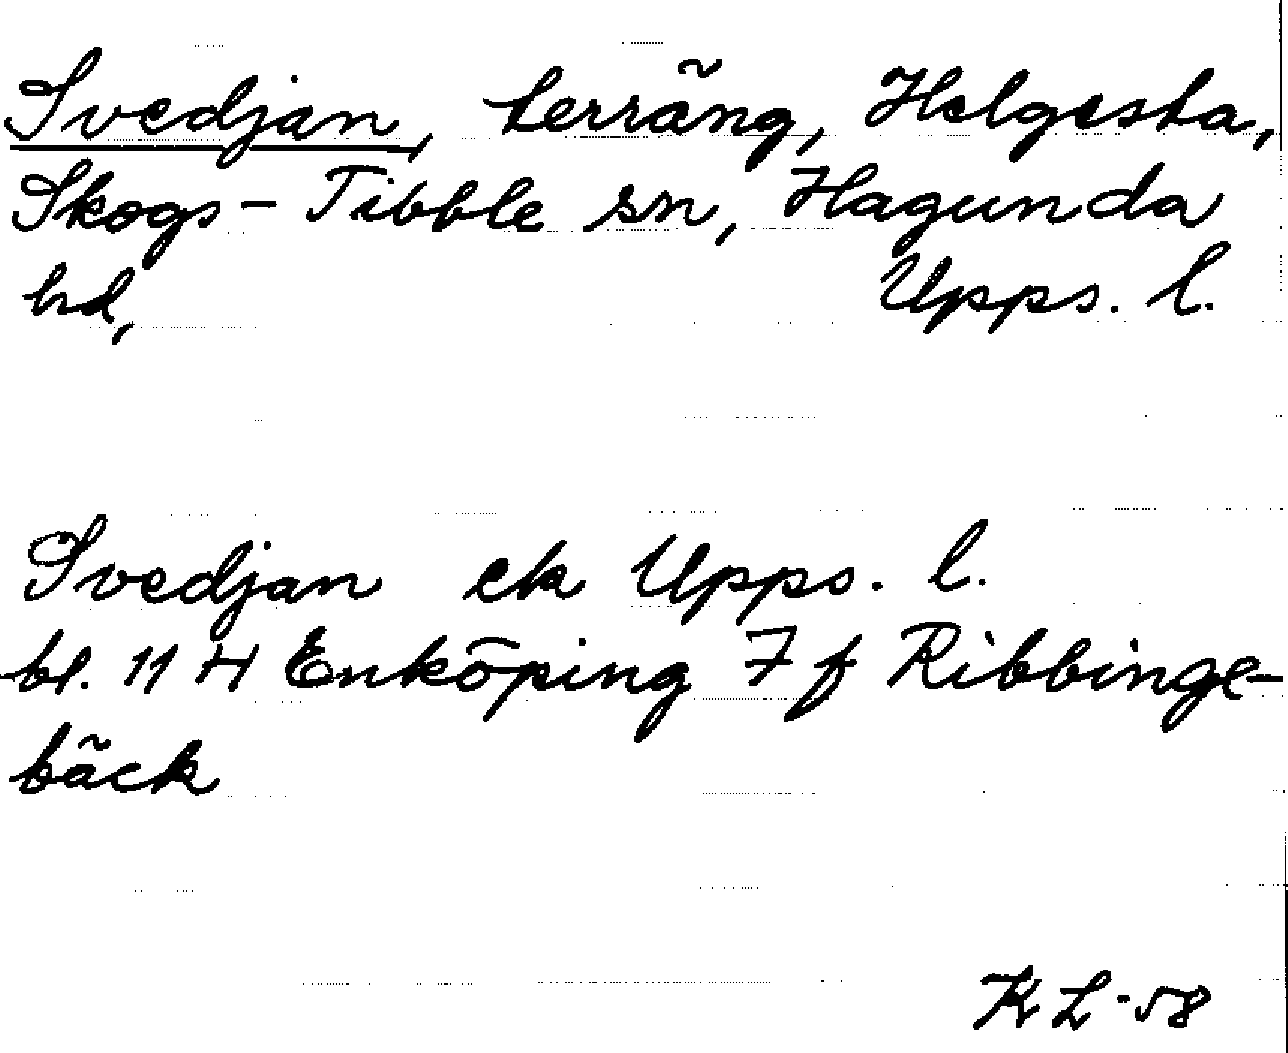 Svedjan, terräng, Helgesta,
Skogs-Tibble sn, Hagunda
hd, Upps. l.
Svedjan ek Upps. l.
bl. 11 H Enköping 7 f Ribbinge-
bäck
KL-58